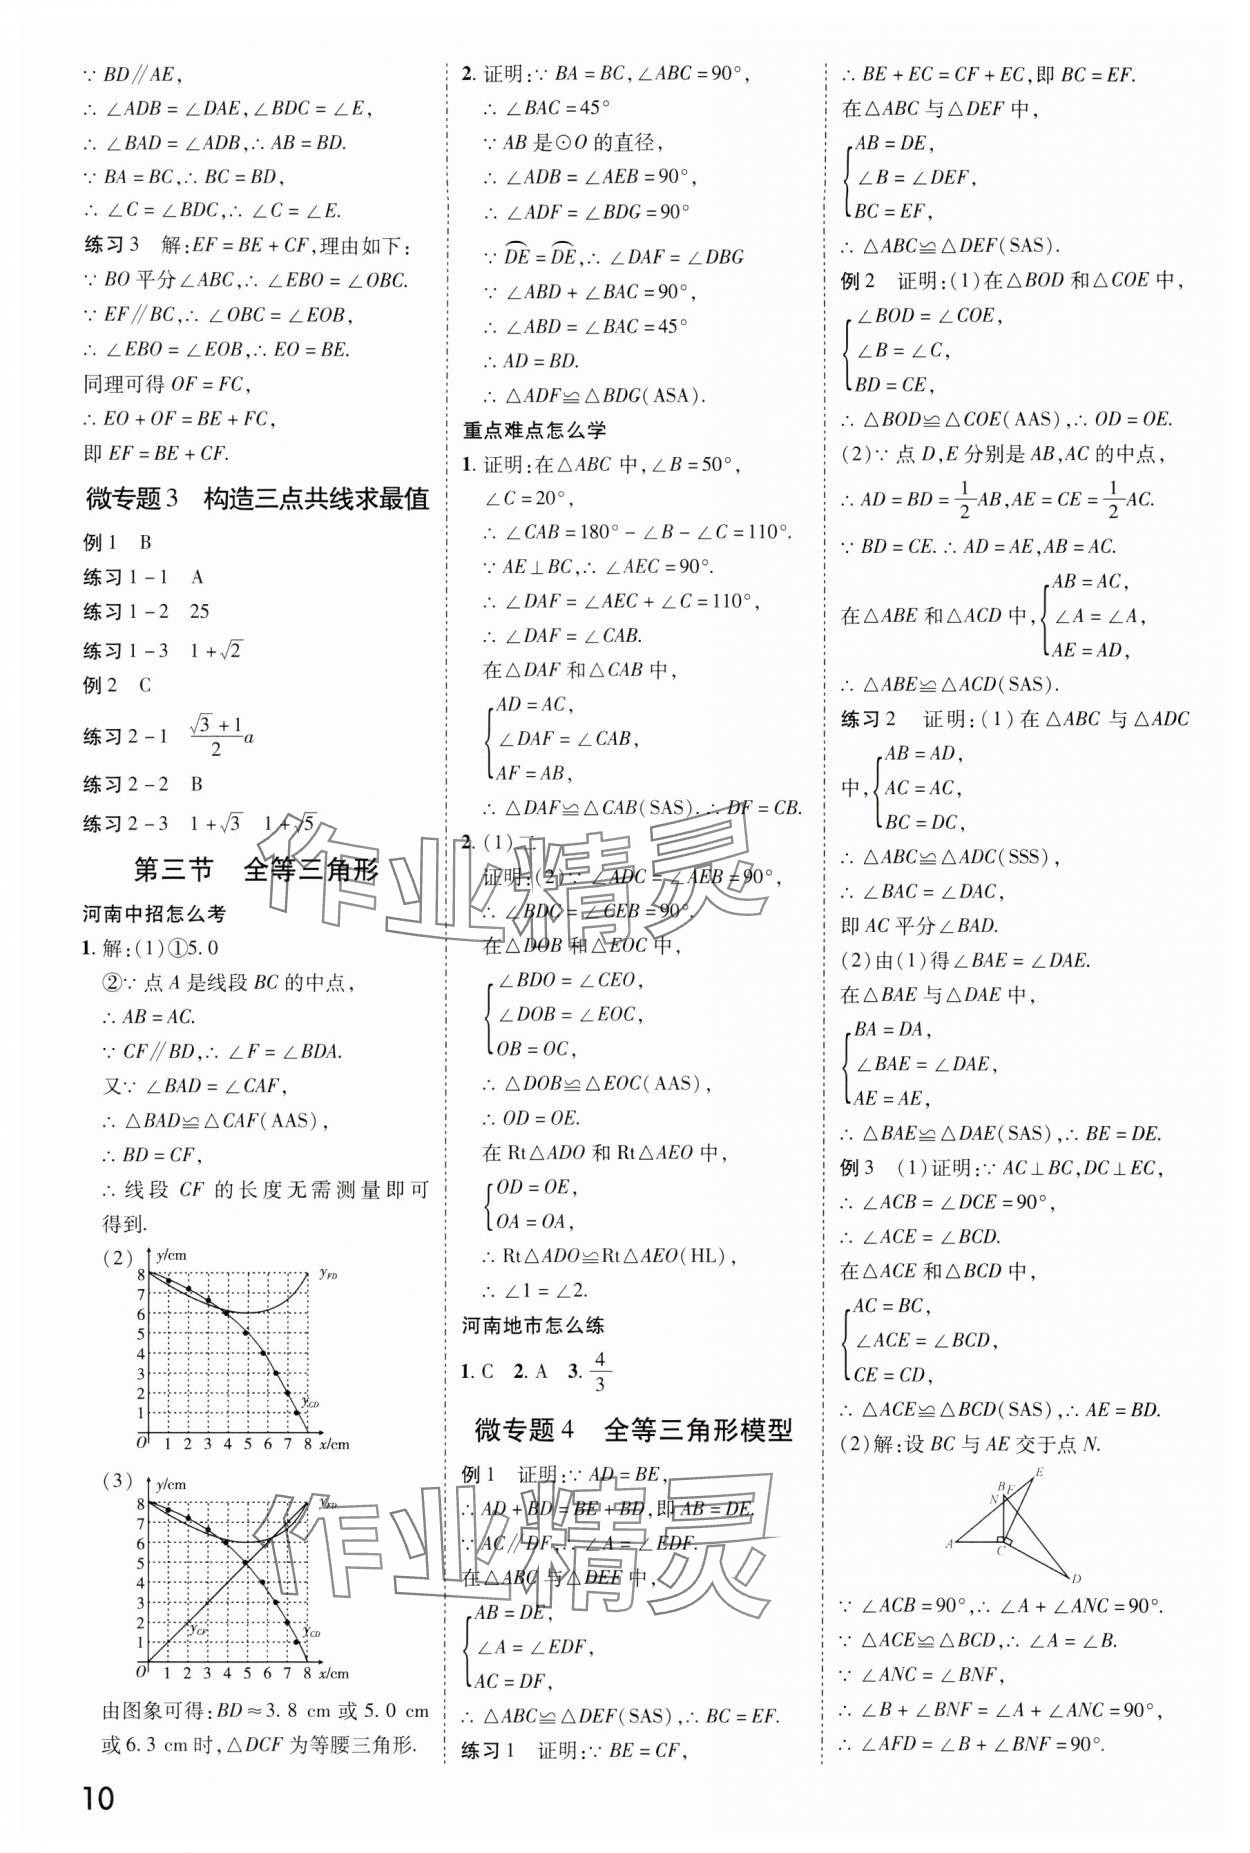 ∵ BD∥AE,
∴ ∠ADB = ∠DAE,∠BDC = ∠E,
∴ ∠BAD = ∠ADB,∴ AB = BD.
∵ BA = BC,∴ BC = BD,
∴ ∠C = ∠BDC,∴ ∠C = ∠E.
练习3 解:EF = BE + CF,理由如下:
∵ BO 平分∠ABC,∴ ∠EBO = ∠OBC.
∵ EF∥BC,∴ ∠OBC = ∠EOB,
∴ ∠EBO = ∠EOB,∴ EO = BE.
同理可得 OF = FC,
∴ EO + OF = BE + FC,
即 EF = BE + CF.
微专题3 构造三点共线求最值
例1 B
练习1-1 A
练习1-2 25
练习1-3 1+√2
例2 C
练习2-1 (√3+1)/2 a
练习2-2 B
练习2-3 1+√3 1+√5
第三节 全等三角形
河南中招怎么考
1. 解:(1)①5.0
②∵ 点 A 是线段 BC 的中点,
∴ AB = AC.
∵ CF∥BD,∴ ∠F = ∠BDA.
又∵ ∠BAD = ∠CAF,
∴ △BAD≌△CAF(AAS),
∴ BD = CF,
∴ 线段 CF 的长度无需测量即可
得到.
(2)
y/cm
8
7
6
5
4
3
2
1
O 1 2 3 4 5 6 7 8 x/cm
y_FD
y_CD
(3)
y/cm
8
7
6
5
4
3
2
1
O 1 2 3 4 5 6 7 8 x/cm
y_FD
y_CF
y_CD
由图象可得:BD≈3.8 cm 或 5.0 cm
或 6.3 cm 时,△DCF 为等腰三角形.
10
2. 证明:∵ BA = BC,∠ABC = 90°,
∴ ∠BAC = 45°
∵ AB 是⊙O 的直径,
∴ ∠ADB = ∠AEB = 90°,
∴ ∠ADF = ∠BDG = 90°
∵ DE = DE,∴ ∠DAF = ∠DBG
∵ ∠ABD + ∠BAC = 90°,
∴ ∠ABD = ∠BAC = 45°
∴ AD = BD.
∴ △ADF≌△BDG(ASA).
重点难点怎么学
1. 证明:在△ABC 中,∠B = 50°,
∠C = 20°,
∴ ∠CAB = 180° - ∠B - ∠C = 110°.
∵ AE⊥BC,∴ ∠AEC = 90°.
∴ ∠DAF = ∠AEC + ∠C = 110°,
∴ ∠DAF = ∠CAB.
在△DAF 和△CAB 中,
AD = AC,
∠DAF = ∠CAB,
AF = AB,
∴ △DAF≌△CAB(SAS).∴ DF = CB.
2. (1)二
证明:(2)∵ ∠ADC = ∠AEB = 90°,
∴ ∠BDC = ∠CEB = 90°,
在△DOB 和△EOC 中,
∠BDO = ∠CEO,
∠DOB = ∠EOC,
OB = OC,
∴ △DOB≌△EOC(AAS),
∴ OD = OE.
在 Rt△ADO 和 Rt△AEO 中,
OD = OE,
OA = OA,
∴ Rt△ADO≌Rt△AEO(HL),
∴ ∠1 = ∠2.
河南地市怎么练
1. C 2. A 3. 4/3
微专题4 全等三角形模型
例1 证明:∵ AD = BE,
∴ AD + BD = BE + BD,即 AB = DE.
∵ AC∥DF,∴ ∠A = ∠EDF.
在△ABC 与△DEF 中,
AB = DE,
∠A = ∠EDF,
AC = DF,
∴ △ABC≌△DEF(SAS),∴ BC = EF.
练习1 证明:∵ BE = CF,
∴ BE + EC = CF + EC,即 BC = EF.
在△ABC 与△DEF 中,
AB = DE,
∠B = ∠DEF,
BC = EF,
∴ △ABC≌△DEF(SAS).
例2 证明:(1)在△BOD 和△COE 中,
∠BOD = ∠COE,
∠B = ∠C,
BD = CE,
∴ △BOD≌△COE(AAS),∴ OD = OE.
(2)∵ 点 D,E 分别是 AB,AC 的中点,
∴ AD = BD = 1/2 AB,AE = CE = 1/2 AC.
∵ BD = CE.∴ AD = AE,AB = AC.
在△ABE 和△ACD 中,
AB = AC,
∠A = ∠A,
AE = AD,
∴ △ABE≌△ACD(SAS).
练习2 证明:(1)在△ABC 与△ADC
中,
AB = AD,
AC = AC,
BC = DC,
∴ △ABC≌△ADC(SSS),
∴ ∠BAC = ∠DAC,
即 AC 平分∠BAD.
(2)由(1)得∠BAE = ∠DAE.
在△BAE 与△DAE 中,
BA = DA,
∠BAE = ∠DAE,
AE = AE,
∴ △BAE≌△DAE(SAS),∴ BE = DE.
例3 (1)证明:∵ AC⊥BC,DC⊥EC,
∴ ∠ACB = ∠DCE = 90°,
∴ ∠ACE = ∠BCD.
在△ACE 和△BCD 中,
AC = BC,
∠ACE = ∠BCD,
CE = CD,
∴ △ACE≌△BCD(SAS),∴ AE = BD.
(2)解:设 BC 与 AE 交于点 N.
E
B
F
N
A
C
D
∵ ∠ACB = 90°,∴ ∠A + ∠ANC = 90°.
∵ △ACE≌△BCD,∴ ∠A = ∠B.
∵ ∠ANC = ∠BNF,
∴ ∠B + ∠BNF = ∠A + ∠ANC = 90°,
∴ ∠AFD = ∠B + ∠BNF = 90°.
作业精灵
作业精灵